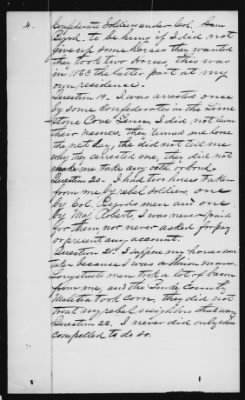 4.
Confederate Soldiers under Col. Sam
Byrd. to be hung if I did not
give up some horses they wanted
they took two horses, this was
in 1863 the latter part at my
own residence.
Question 19. I was arrested once
by some Confederates in the Lime
stone Cove Tenn, I did not learn
their names. they turned me loose
the next day, the did not tell me
why they arrested me, they did not
make me take any oath or bond.
Question 20. I had two horses taken
from me by rebel soldiers, one
by Col. Byrds men and one
by Maj. Roberts, I was never paid
for them nor never asked for pay
or present any account.
Question 21. I suppose my horses were
taken because I was a Union man.
Longstreet men took a lot of bacon
from me, and the County
Malitia took corn, they did not
treat my rebel neighbors that way
Question 22. I never did only when
compelled to do so.